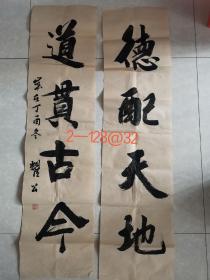 德配天地
道貫古今
歲在丁酉冬 耀公
2—128@32